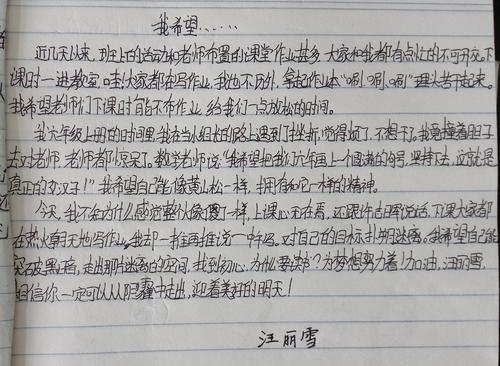 我希望……
近几天以来，班上的活动和老师布置的课堂作业甚多，大家和我都有点忙的不可开交。下
课时一进教室，哇！大家都在写作业，我也不例外，拿起作业本“唰、唰、唰”埋头苦干起来。
我希望老师们下课时能不布作业，给我们一点放松的时间。
到六年级上册的时间里，我在当小组长的路上遇到了挫折，觉得烦了，不想干了。我鼓着胆子
去对老师，老师都惊呆了。数学老师说：“我希望把我们六年画上一个圆满的句号，坚持下去，这就是
真正的女汉子！”我希望自己能像黄山松一样，拥有和它一样的精神。
今天，我不知为什么感觉整个像傻了一样，上课心不在焉，还跟许志晖说话，下课大家都
在热火朝天地写作业，我却一推再推说一下写。对自己的目标十分迷惑。我希望自己能
突破黑暗，走出那片迷惑的空间，找到初心，为什么要读书？为梦想努力着！加油，汪丽雪，
相信你一定可以从阴霾中走出，迎着美好的明天！
汪丽雪